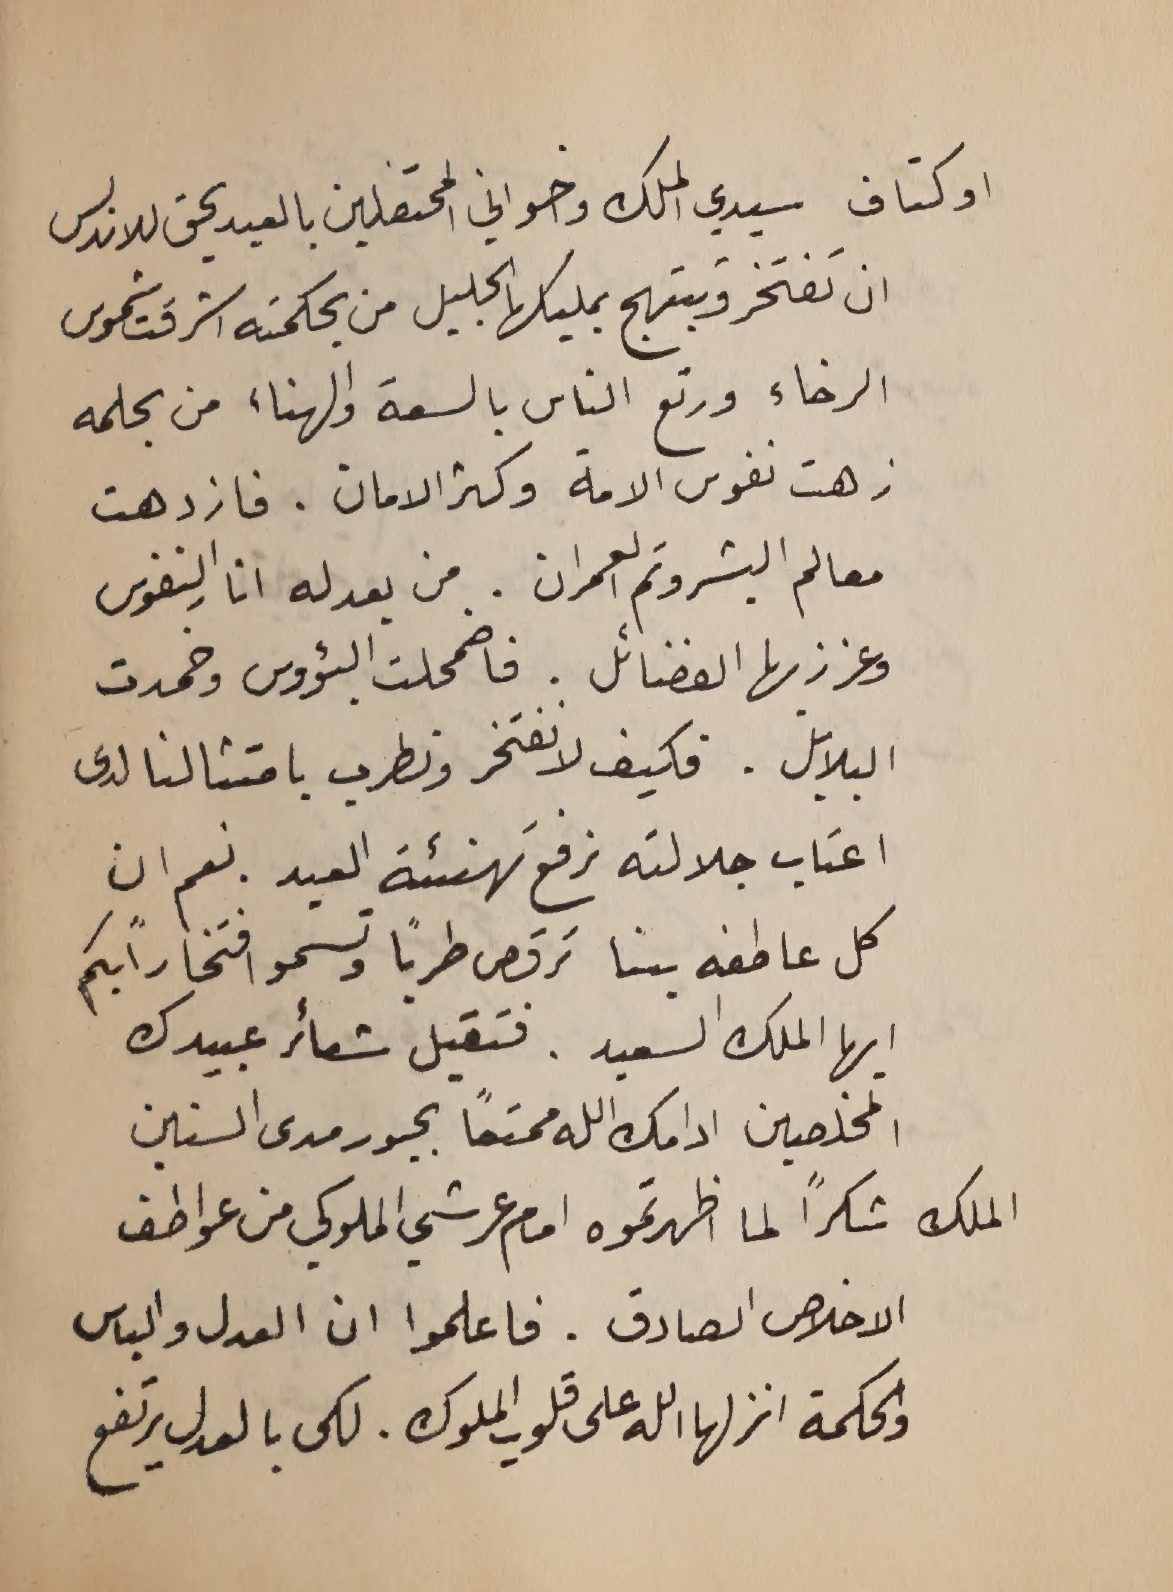 اوكتاف سيدي الملك واخواني المحتفلين بالعيد يحق للاندلس
ان تفتخر وتبتهج بمليكها الجليل من بحكمته اشرقت شموس
الرخاء ورتع الناس بالسعة والهناء من بحلمه
زهت نفوس الامة وكثر الامان . فازدهت
معالم البشر وتم العمران . من بعدله انار النفوس
وعزز بها الفضائل . فاضمحلت البؤوس وخمدت
البلابل . فكيف لا نفتخر ونطرب بامتثالنا لدى
اعتاب جلالته نرفع تهنئة العيد . نعم ان
كل عاطفه بينا ترقص طربًا وتسمو افتخارًا بكم
ايها الملك السعيد . فتقبل شعائر عبيدك
المخلصين ادامك الله ممتعًا بحبور مدى السنين
الملك شكرًا لما اظهرتموه امام عرشي الملوكي من عواطف
الاخلاص الصادق . فاعلموا ان العدل والباس
والحكمة انزلها الله على قلوب الملوك . لكى بالعدل يرتفع